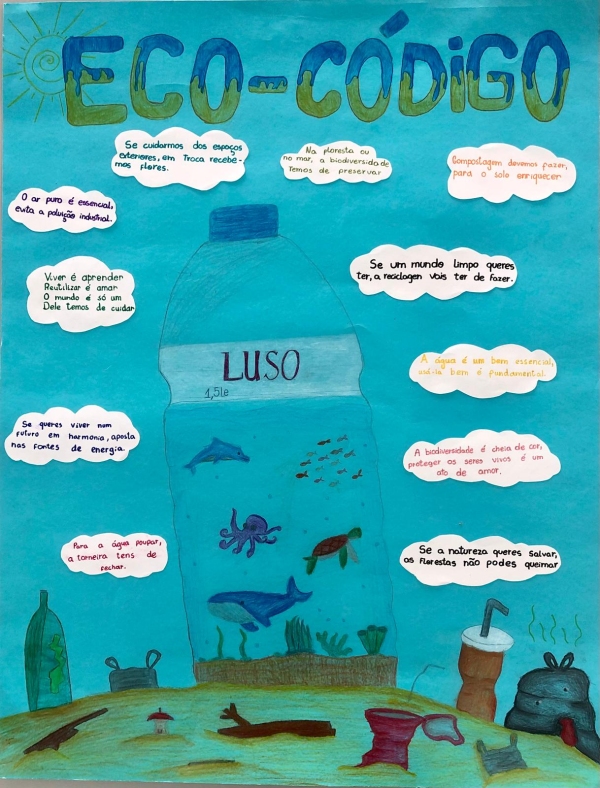 ECO-CÓDIGO
Se cuidarmos dos espaços
exteriores, em troca recebe-
mos flores.
Na floresta ou
no mar, a biodiversidade
temos de preservar
Compostagem devemos fazer,
para o solo enriquecer
O ar puro é essencial,
evita a poluição industrial.
Se um mundo limpo queres
ter, a reciclagem vais ter de fazer.
Viver é aprender
Reutilizar é amar
O mundo é só um
Dele temos de cuidar
LUSO
1,5le
A água é um bem essencial,
usá-la bem é fundamental.
Se queres viver num
futuro em harmonia, aposta
nas fontes de energia.
A biodiversidade é cheia de cor,
proteger os seres vivos é um
ato de amor.
Para a água poupar,
a torneira tens de
fechar.
Se a natureza queres salvar,
as florestas não podes queimar